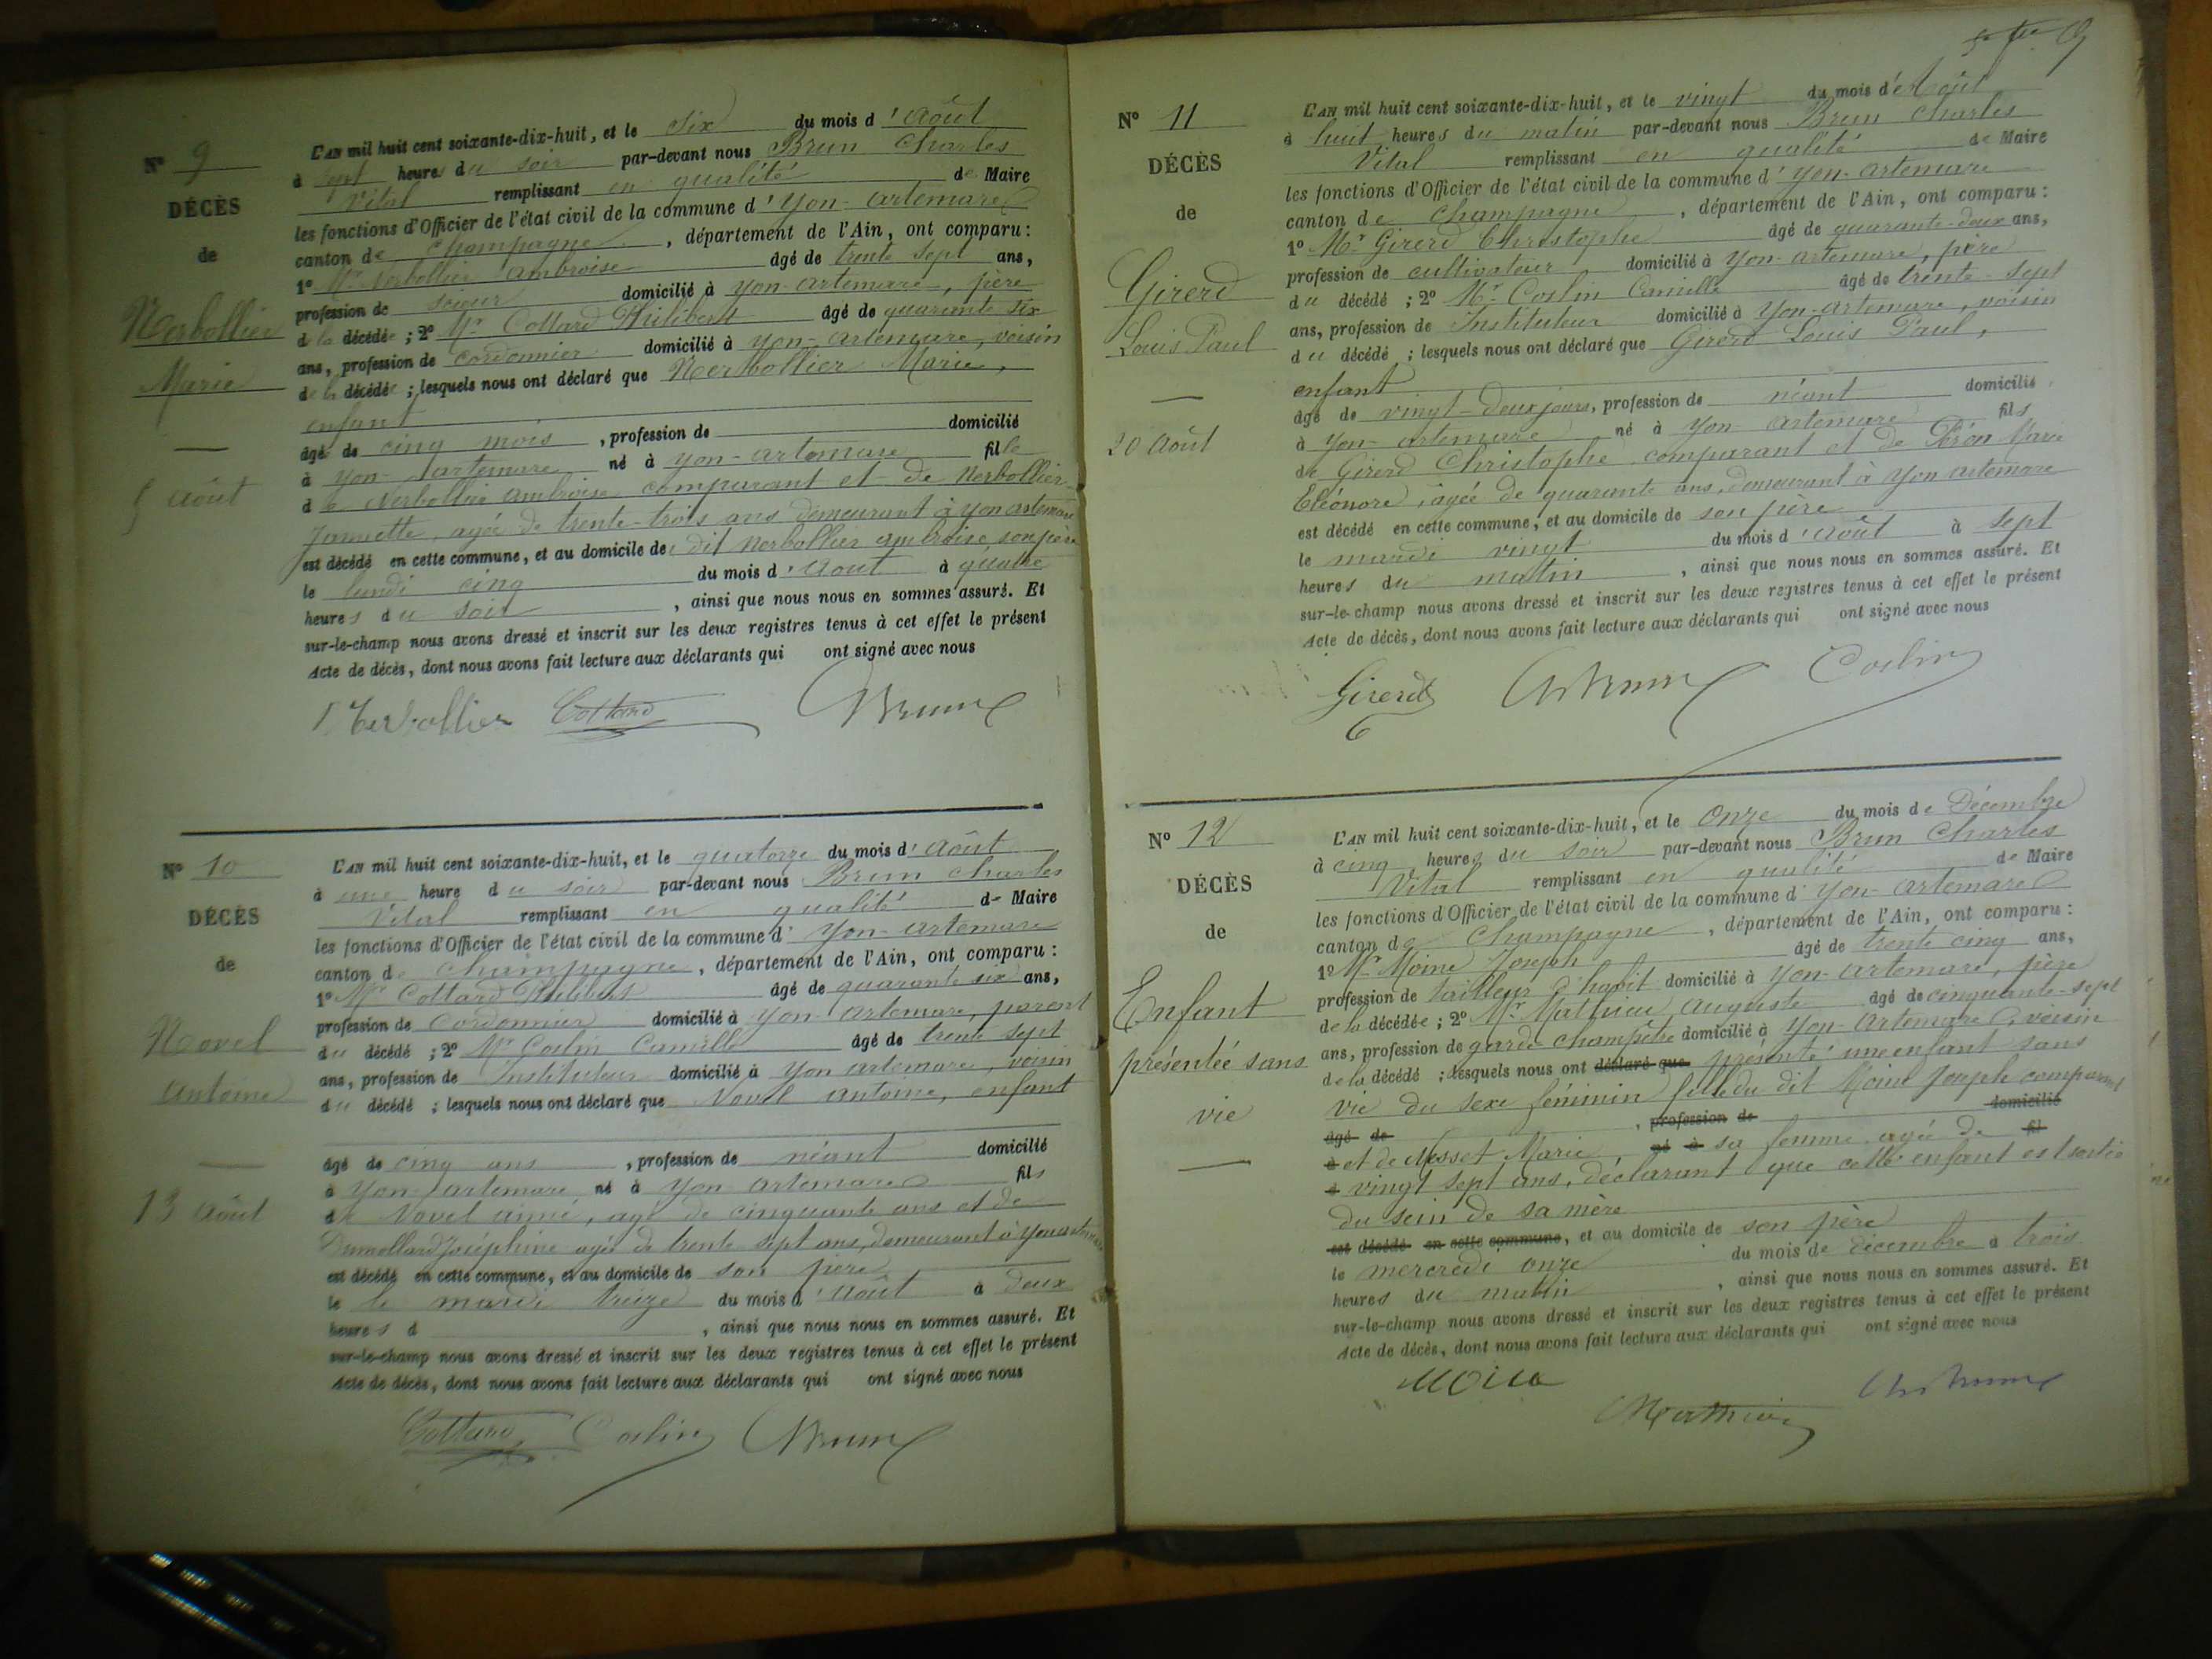 N° 9
DÉCÈS
de
Nerbollier
Marie
5 Août
L'AN mil huit cent soixante-dix-huit, et le Six du mois d'Août
à sept heures du soir par-devant nous Brun Charles
Vital remplissant en qualité de Maire
les fonctions d'Officier de l'état civil de la commune d'Yon-Artemare
canton de Champagne, département de l'Ain, ont comparu :
1° Mr Nerbollier Ambroise âgé de trente sept ans,
profession de domicilié à Yon-Artemare, père
de la décédée ; 2° Mr Cottard Philibert âgé de quarante six
ans, profession de cordonnier domicilié à Yon-Artemare, voisin
de la décédée ; lesquels nous ont déclaré que Nerbollier Marie,
enfant
âgé de cinq mois, profession de domicilié
à Yon-Artemare né à Yon-Artemare fille
de Nerbollier Ambroise comparant et de Nerbollier
Jannette, agée de trente-trois ans demeurant à Yon artemare
est décédé en cette commune, et au domicile de dit Nerbollier Ambroise son père
le lundi cinq du mois d'Aout à quatre
heures du soir, ainsi que nous nous en sommes assuré. Et
sur-le-champ nous avons dressé et inscrit sur les deux registres tenus à cet effet le présent
Acte de décès, dont nous avons fait lecture aux déclarants qui ont signé avec nous
Nerbollier Cottard Brun
N° 10
DÉCÈS
de
Novel
Antoine
13 Août
L'AN mil huit cent soixante-dix-huit, et le quatorze du mois d'Août
à une heure du soir par-devant nous Brun Charles
Vital remplissant en qualité de Maire
les fonctions d'Officier de l'état civil de la commune d'Yon-Artemare
canton de Champagne, département de l'Ain, ont comparu :
1° Mr Cottard Philibert âgé de quarante six ans,
profession de Cordonnier domicilié à Yon-Artemare, parent
du décédé ; 2° Mr Coslin Camille âgé de trente sept
ans, profession de Instituteur domicilié à Yon artemare, voisin
du décédé ; lesquels nous ont déclaré que Novel Antoine, enfant
âgé de cinq ans, profession de néant domicilié
à Yon-Artemare né à Yon Artemare fils
de Novel Aimé, agé de cinquante ans et de
Dumollard Joséphine agée de trente sept ans, demeurant à Yon artemare
est décédé en cette commune, et au domicile de son père
le le mardi treize du mois d'Août à deux
heures d, ainsi que nous nous en sommes assuré. Et
sur-le-champ nous avons dressé et inscrit sur les deux registres tenus à cet effet le présent
Acte de décès, dont nous avons fait lecture aux déclarants qui ont signé avec nous
Cottard Coslin Brun
N° 11
DÉCÈS
de
Girerd
Louis Paul
20 Août
L'AN mil huit cent soixante-dix-huit, et le vingt du mois d'Août
à huit heures du matin par-devant nous Brun Charles
Vital remplissant en qualité de Maire
les fonctions d'Officier de l'état civil de la commune d'Yon-Artemare
canton de Champagne, département de l'Ain, ont comparu :
1° Mr Girerd Christophe âgé de quarante-deux ans,
profession de cultivateur domicilié à Yon-Artemare, père
du décédé ; 2° Mr Coslin Camille âgé de trente-sept
ans, profession de Instituteur domicilié à Yon-Artemare, voisin
du décédé ; lesquels nous ont déclaré que Girerd Louis Paul,
enfant
âgé de vingt-deux jours, profession de néant domicilié
à Yon-Artemare né à Yon Artemare fils
de Girerd Christophe comparant et de Marie
Eléonore, agée de quarante ans, demeurant à Yon artemare
est décédé en cette commune, et au domicile de son père
le mardi vingt du mois d'Août à Sept
heures du matin, ainsi que nous nous en sommes assuré. Et
sur-le-champ nous avons dressé et inscrit sur les deux registres tenus à cet effet le présent
Acte de décès, dont nous avons fait lecture aux déclarants qui ont signé avec nous
Girerd Brun Coslin
N° 12
DÉCÈS
de
Enfant
présentée sans
vie
L'AN mil huit cent soixante-dix-huit, et le Onze du mois de Décembre
à cinq heures du soir par-devant nous Brun Charles
Vital remplissant en qualité de Maire
les fonctions d'Officier de l'état civil de la commune d'Yon-Artemare
canton de Champagne, département de l'Ain, ont comparu :
1° Mr Moine Joseph âgé de trente cinq ans,
profession de tailleur d'habit domicilié à Yon-Artemare, père
de la décédée ; 2° Mr Mathieu Auguste âgé de cinquante-sept
ans, profession de garde champêtre domicilié à Yon-Artemare, voisin
de la décédé ; lesquels nous ont déclaré que présenté une enfant sans
vie du sexe féminin fille du dit Moine Joseph comparant
âgé de, profession de domicilié
à et de Misset Marie, né à sa femme agée de fil
d vingt sept ans, déclarant que cette enfant est sortie
du sein de sa mère
est décédé en cette commune, et au domicile de son père
le mercredi onze du mois de décembre à trois
heures du matin, ainsi que nous nous en sommes assuré. Et
sur-le-champ nous avons dressé et inscrit sur les deux registres tenus à cet effet le présent
Acte de décès, dont nous avons fait lecture aux déclarants qui ont signé avec nous
Moine Mathieu Brun